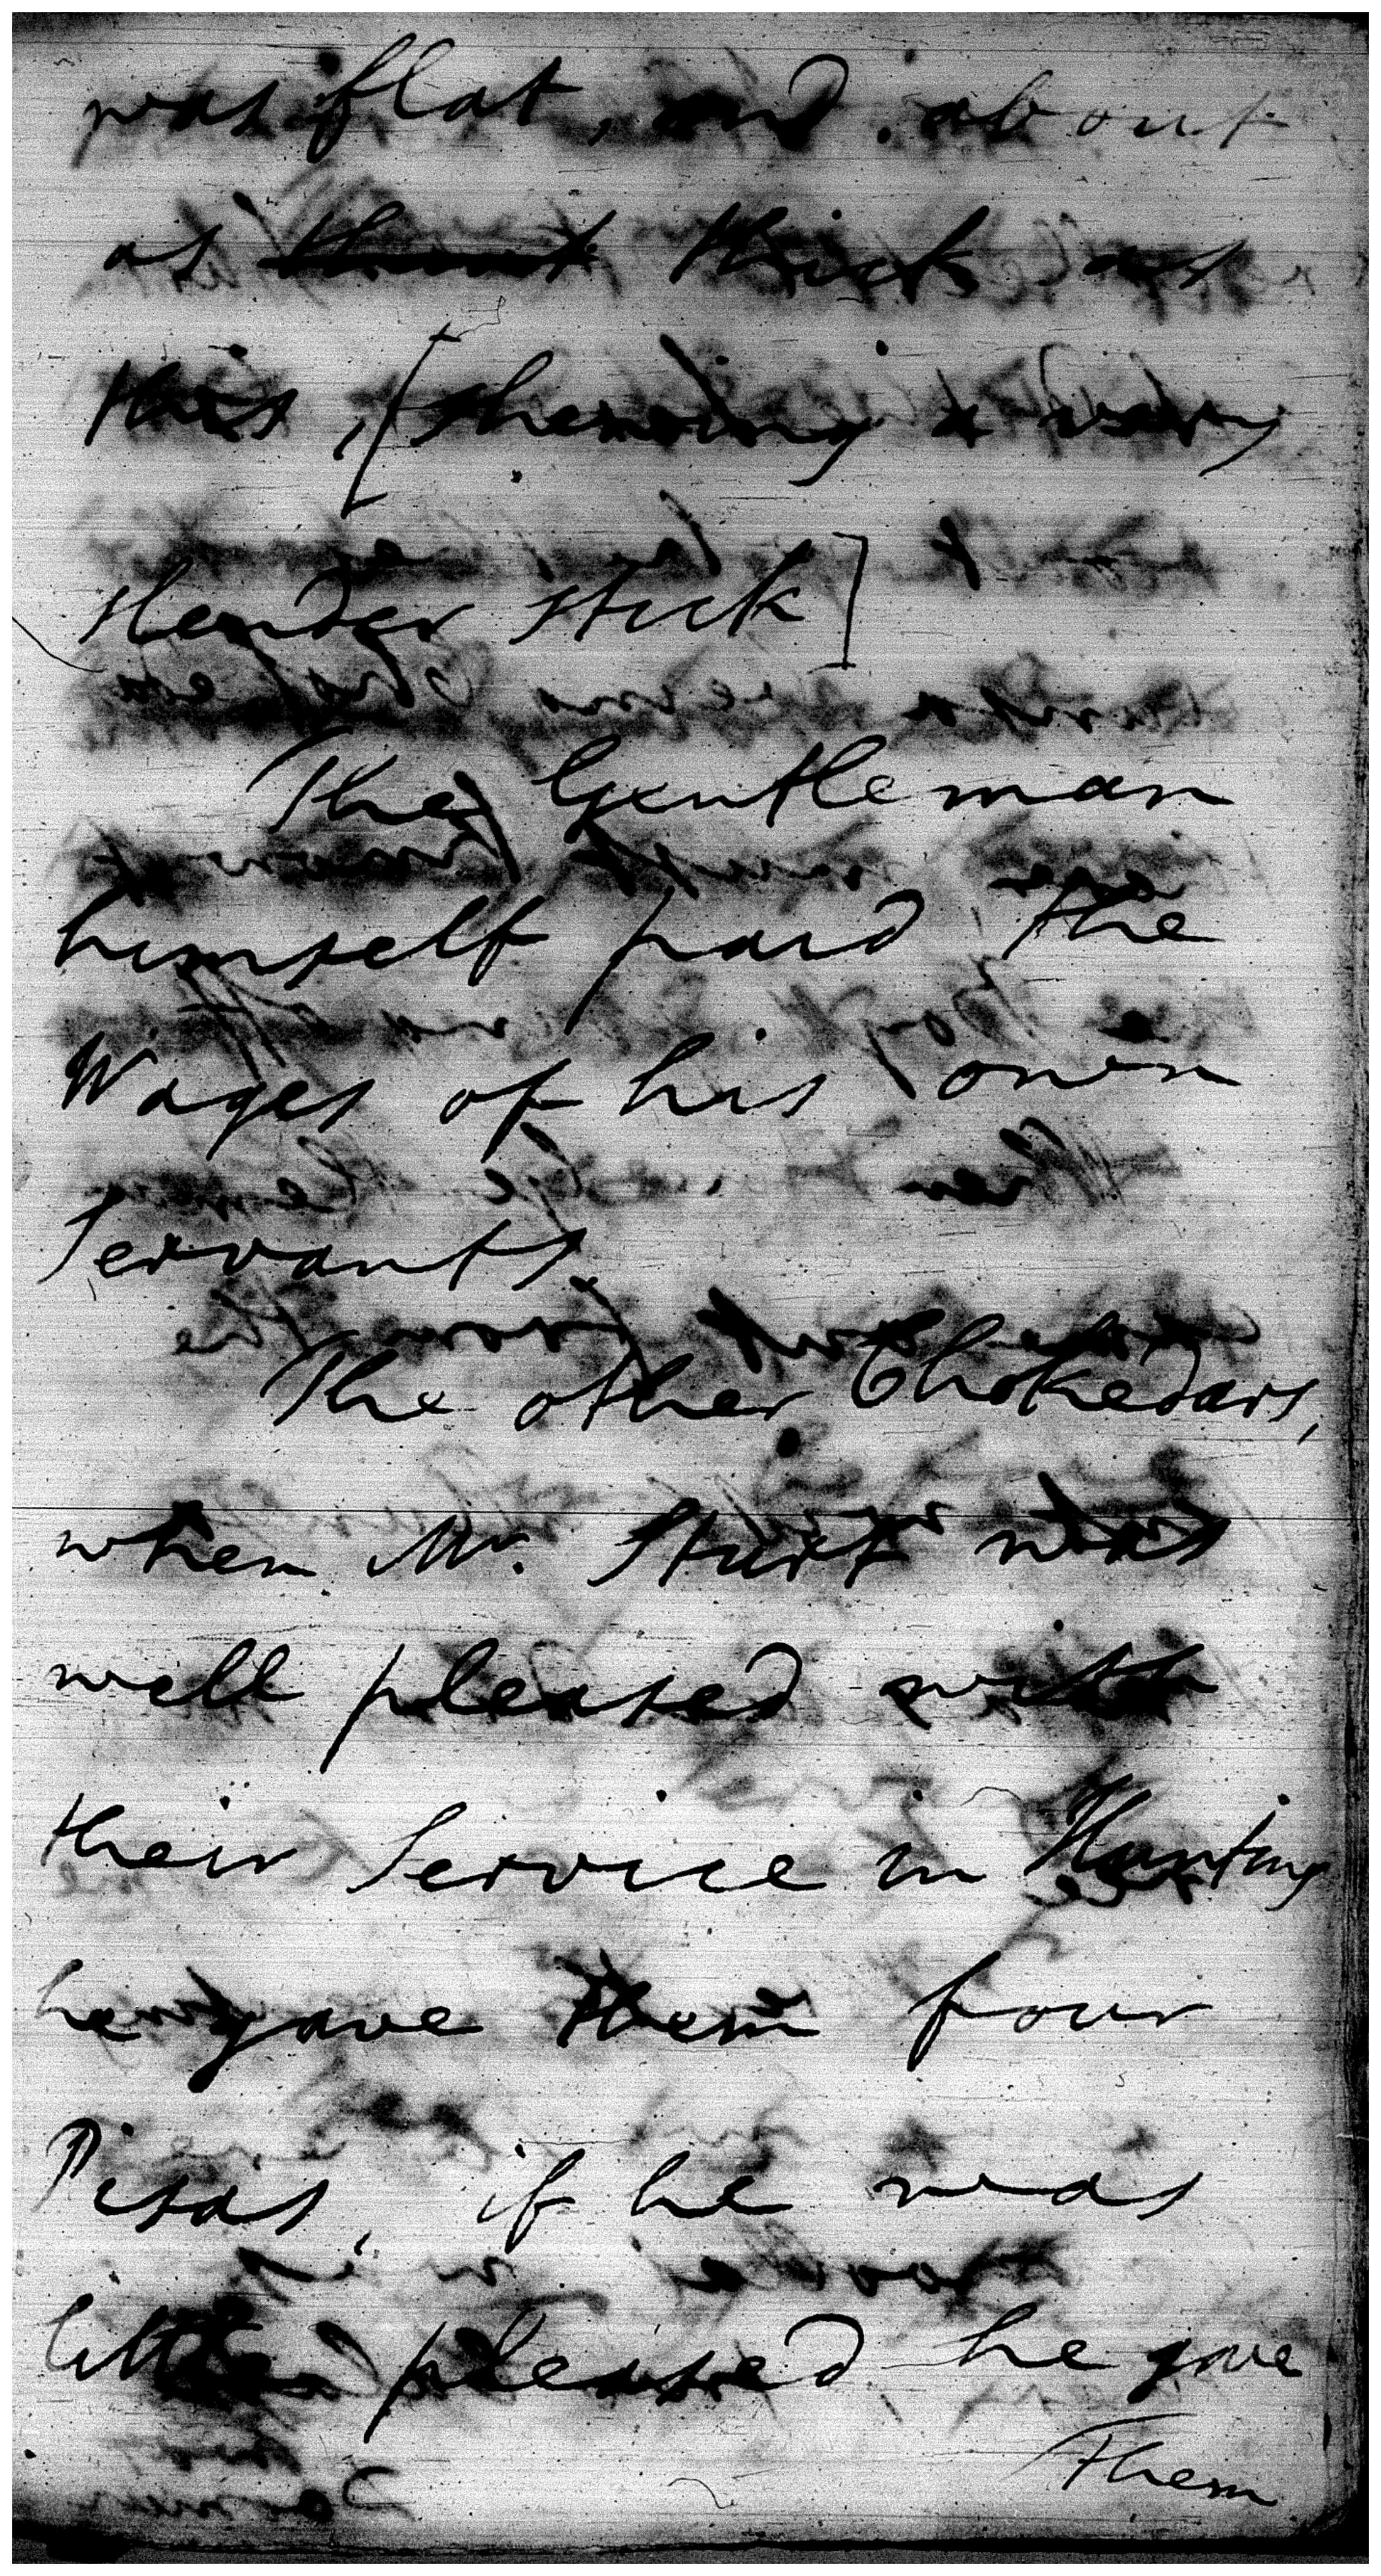 was flat, and about
as thick as
this, [shewing a very
slender stick]
The Gentleman
himself paid the
Wages of his own
Servants
The other Chokedars,
when Mr. Sturt was
well pleased with
their Service in Hunting
he gave them four
Pisas, if he was
little pleased he gave
Them